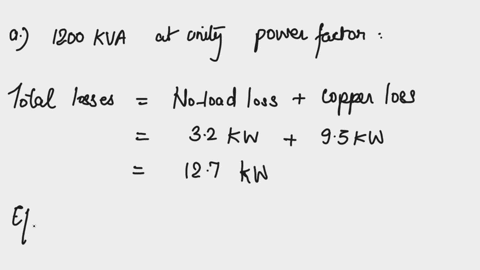 a.) 1200 KVA at unity power factor :
Total losses = No-load loss + copper loss
= 3.2 KW + 9.5 KW
= 12.7 KW
Ef.